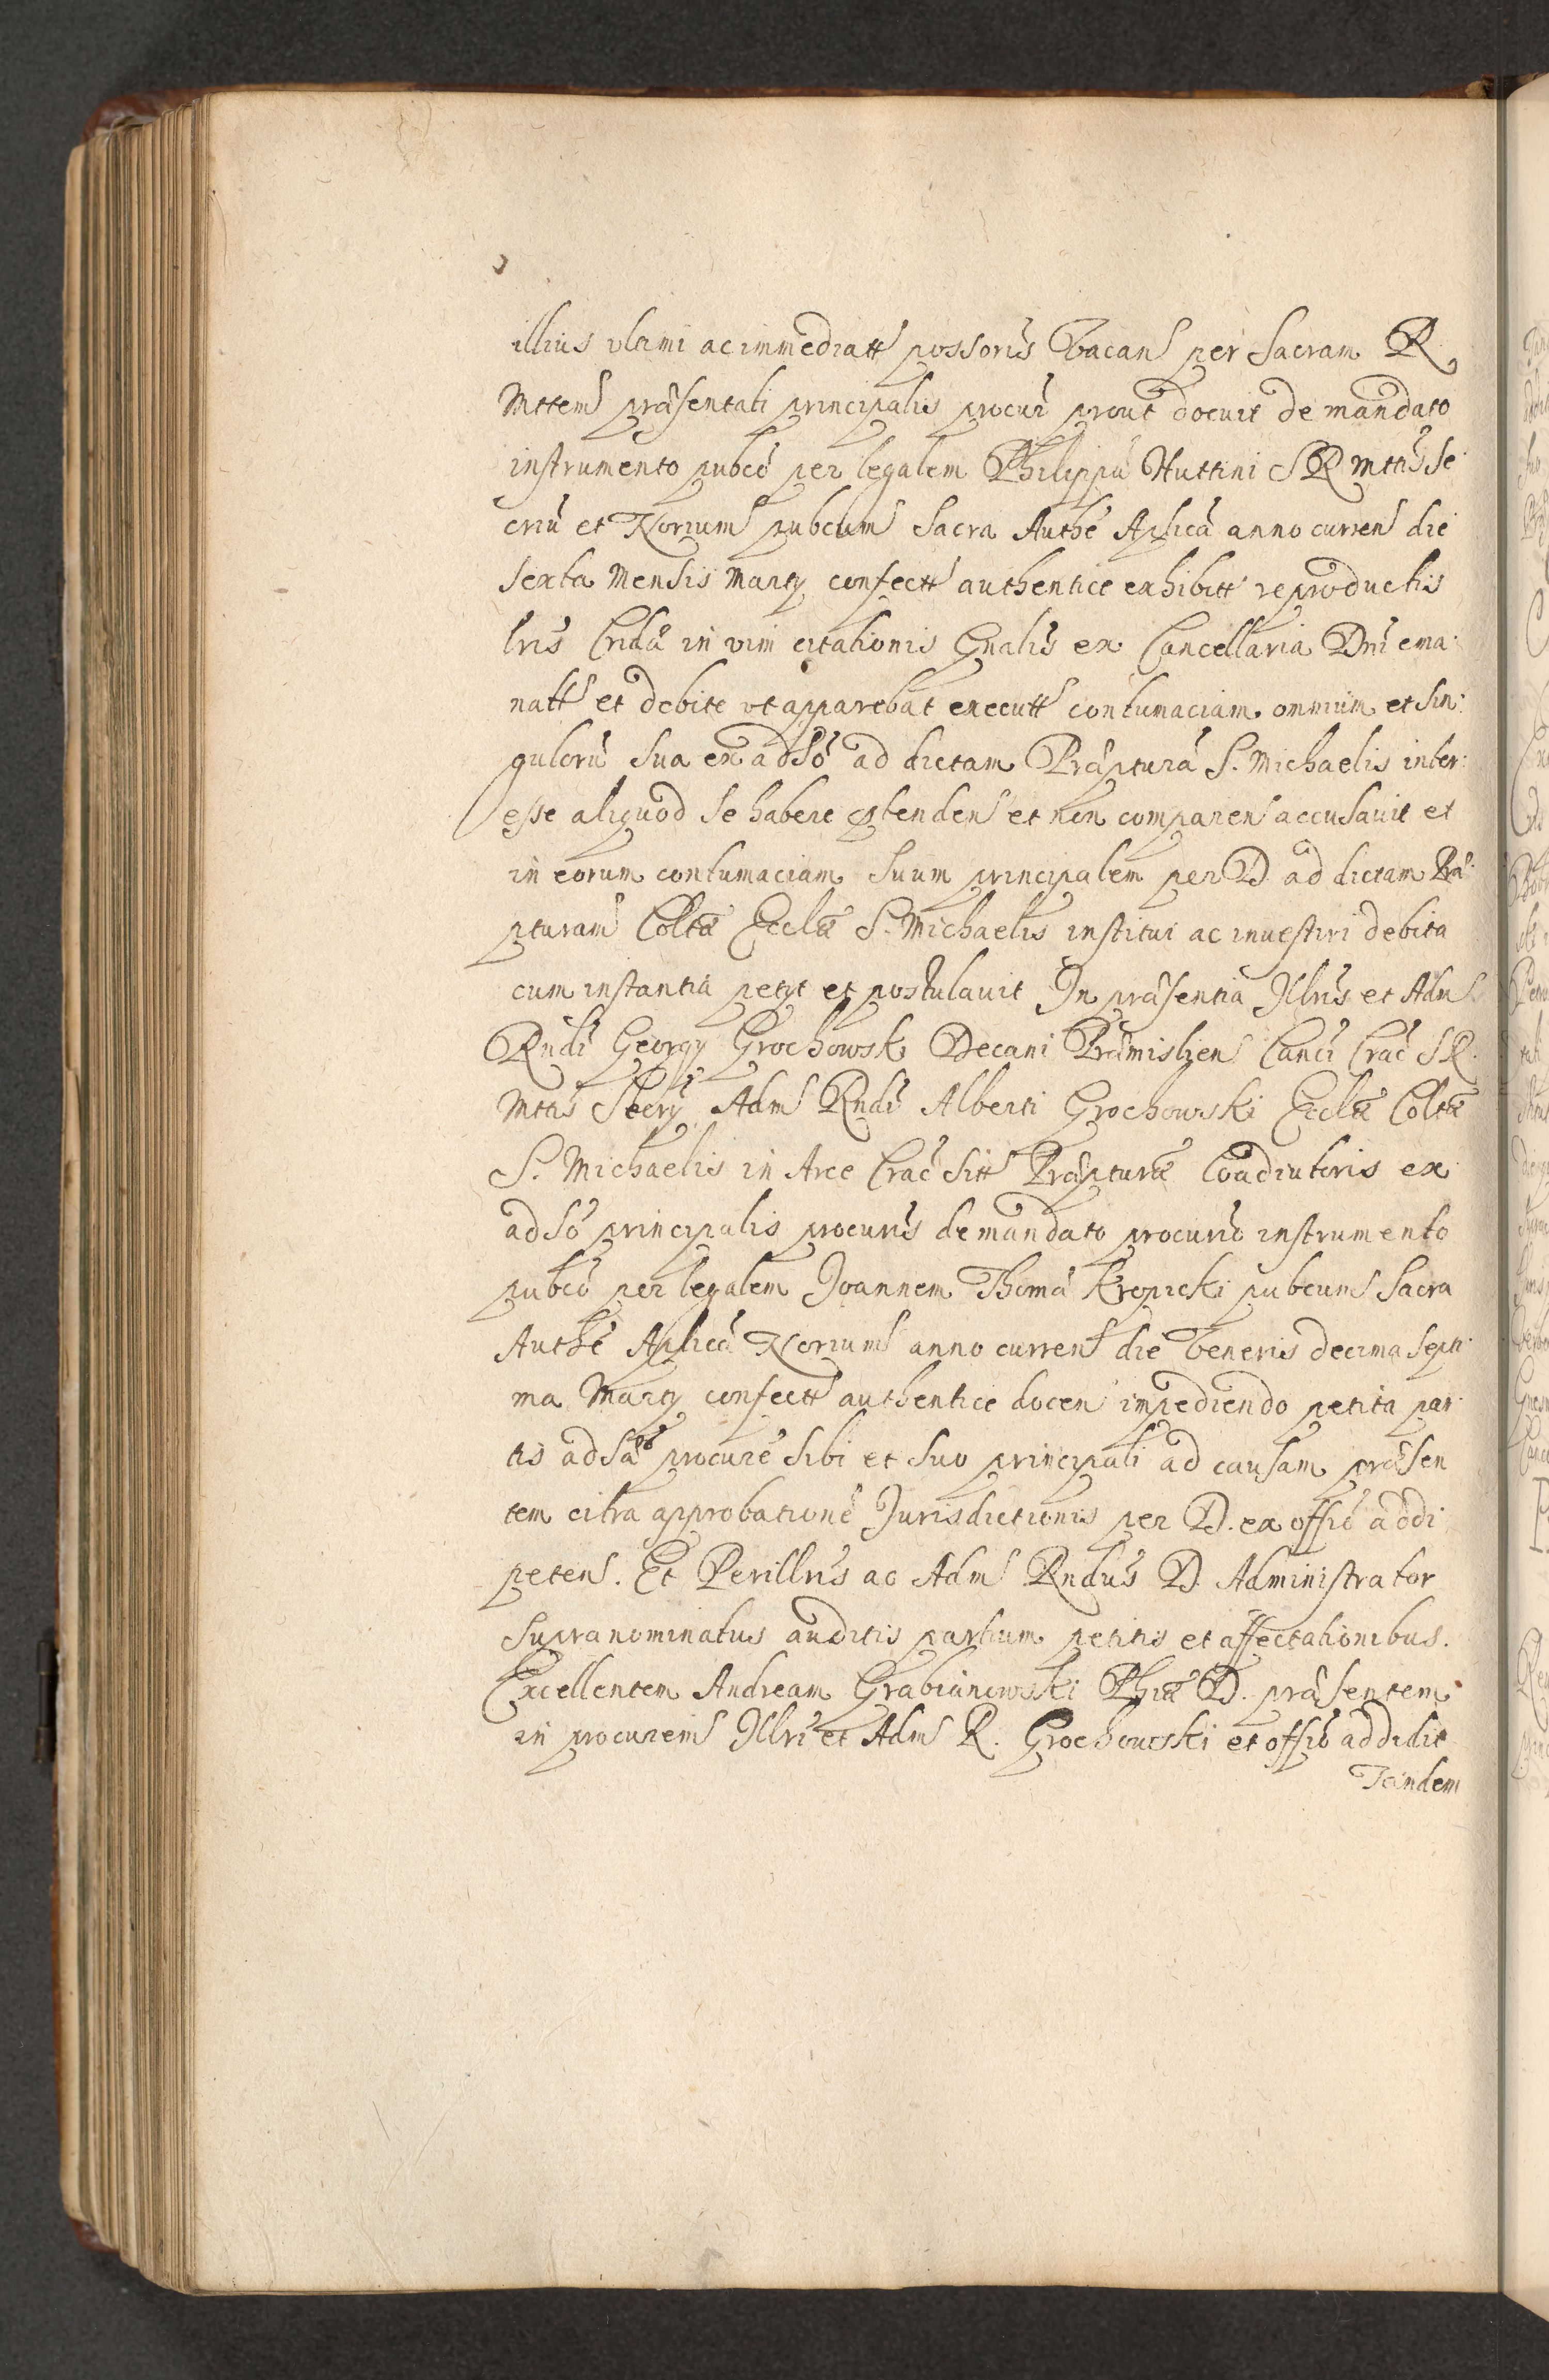 illius vltimi ac immediatt possoris vacan per Sacram R
Mttem præsentati principalis procur prout docuit de mandato
instrumento pubco per legalem Philippu Huttini S R Mttis Se
criu et Norium pubcum Sacra Authe Aplica anno curren die
sexta Mensis Marty confectt authentice exhibitt reproductis
lris Crida in vim citationis Gnalis ex Cancellaria Dni ema
natt et debite vt apparebat executt contumaciam omnium et sin
guloru sua ex adso ad dictam Præptura S. Michaelis inter
esse aliquod se habere prtenden et non comparen accusauit et
in eorum contumaciam suum principalem per D ad dictam Præ
pturam Colta Eccla S. Michaelis institui ac inuestiri debita
cum instantia petyt et postulauit In præsentia Illris et Adm
Rndi Georgy Grochowski Decani Præmislien Canci Crac S R
Mttis Secry Adm Rndi Alberti Grochowski Eccle Colte
S. Michaelis in Arce Crac sitt Præpture Coadiutoris ex
adso principalis procuris de mandato procurio instrumento
pubco per legalem Joannem Thoma Kropicki pubcum Sacra
Authe Aplica Norium anno curren die Veneris decima septi
ma Marty confectt authentice docen impediendo petita par
tis adsa procure sibi et suo principali ad causam præsen
tem citra approbatione Jurisdictionis per D. ex offio addi
peten. Et Perillris ac Adm Rndus D. Administrator
supra nominatus auditis partium petitis et affectationibus.
Excellentem Andream Grabianowski Phiæ D. præsentem
in procurem Illri et Adm R. Grochowski et offio addidit
Tandem